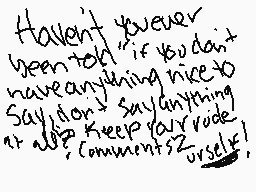 Haven't you ever
been told "if you don't
have anything nice to
say, don't say anything
at all? Keep your rude
comments 2
urself!